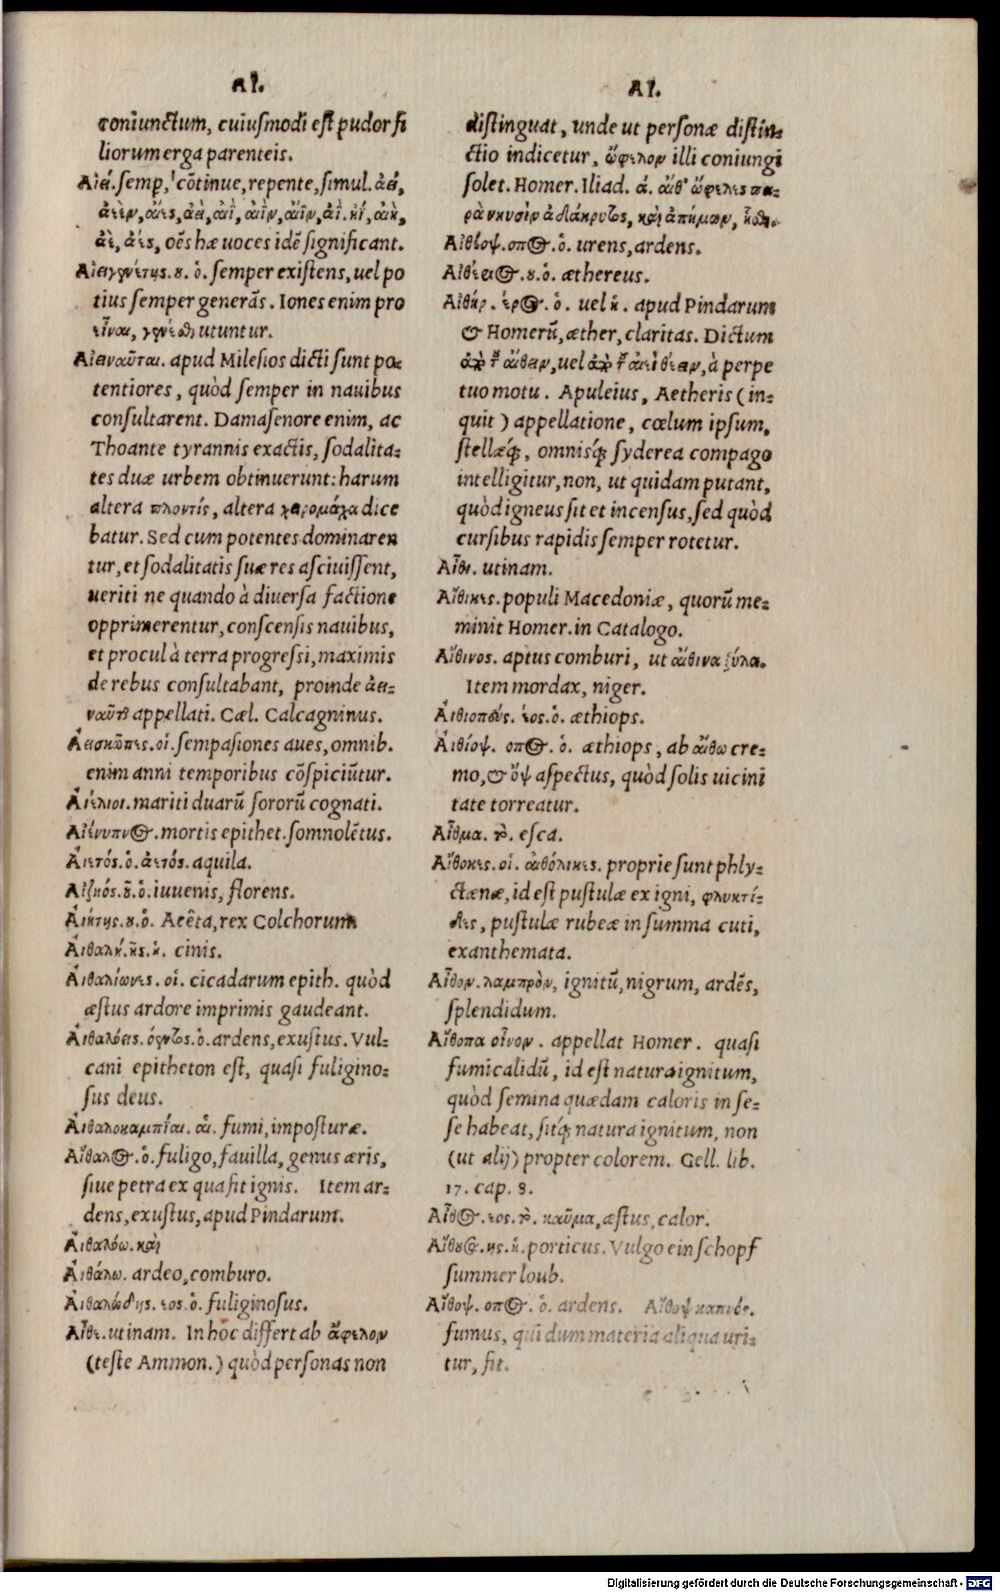 ΑΙ.
coniunctum, cuiusmodi est pudor fi
liorum erga parenteis.
Αἰεί. semp, cōtinue, repente, simul. ἀεί,
ἀιὲν, ἀιὲς, ἀεὶ, ἀῒ, ἀῒν,
ἀὶ, ἀές, oēs hæ uoces idē significant.
Αἰειγενέτης. ȣ. ὁ. semper existens, uel po
tius semper generās. Iones enim pro
εἶναι, γενέσθαι utuntur.
Αἰειναῦται. apud Milesios dicti sunt po
tentiores, quòd semper in nauibus
consultarent. Damasenore enim, ac
Thoante tyrannis exactis, sodalita-
tes duæ urbem obtinuerunt: harum
altera πλοντίς, altera χειρομάχα dice
batur. Sed cum potentes dominaren
tur, et sodalitatis suæ res asciuissent,
ueriti ne quando à diuersa factione
opprimerentur, conscensis nauibus,
et procul à terra progressi, maximis
de rebus consultabant, proinde ἀει-
ναῦται appellati. Cæl. Calcagninus.
Ἀεισκῶπες. οἱ. sempasiones aues, omnib.
enim anni temporibus cōspiciūtur.
Ἀέλιοι. mariti duarū sororū cognati.
Αἰένυπνος. mortis epithet. somnolētus.
Ἀιετός. ὁ. ἀετός. aquila.
Αἰζηός. ȣ̃. ὁ. iuuenis, florens.
Αἰήτης. ȣ. ὁ. Aeëta, rex Colchorum
Αἰθαλή. ῆς. ἡ. cinis.
Αἰθαλίωνες. οἱ. cicadarum epith. quòd
æstus ardore imprimis gaudeant.
Αἰθαλόεις. όεντος. ὁ. ardens, exustus. Vul-
cani epitheton est, quasi fuligino-
sus deus.
Αἰθαλοκομπίαι. αἱ. fumi, imposturæ.
Αἴθαλος. ὁ. fuligo, fauilla, genus æris,
siue petra ex qua fit ignis. Item ar-
dens, exustus, apud Pindarum.
Αἰθαλόω. καὶ
Αἰθάλω. ardeo, comburo.
Αἰθαλώδης. εος. ὁ. fuliginosus.
Αἴθε. utinam. In hoc differt ab ὤφελον
(teste Ammon.) quòd personas non
ΑΙ.
distinguat, unde ut personæ distin-
ctio indicetur, ὤφελον illi coniungi
solet. Homer. Iliad. ά. αἴθ' ὤφελες πα-
ρὰ νηυσὶν ἀδάκρυτος, καὶ ἀπήμων,
Αἰθίοψ. οπος. ὁ. urens, ardens.
Αἰθέριος. ȣ. ὁ. æthereus.
Αἰθήρ. έρος. ὁ. uel ἡ. apud Pindarum
& Homerū, æther, claritas. Dictum
παρὰ τὸ αἴθειν, uel παρὰ τὸ ἀεὶ θέειν, à perpe
tuo motu. Apuleius, Aetheris (in-
quit) appellatione, cœlum ipsum,
stellæq́;, omnisq́; syderea compago
intelligitur, non, ut quidam putant,
quòd igneus sit et incensus, sed quòd
cursibus rapidis semper rotetur.
Αἶθι. utinam.
Αἴθικες. populi Macedoniæ, quorū me-
minit Homer. in Catalogo.
Αἴθινος. aptus comburi, ut αἴθινα ξύλα.
Item mordax, niger.
Ἀιθιοπεύς. έος. ὁ. æthiops.
Ἀιθίοψ. οπος. ὁ. æthiops, ab αἴθω cre-
mo, & ὄψ aspectus, quòd solis uicini
tate torreatur.
Αἶθμα. τὸ. esca.
Αἴθοκες. οἱ. αἰθόλικες. proprie sunt phly-
ctænæ, id est pustulæ ex igni, φλυκτί-
δες, pustulæ rubeæ in summa cuti,
exanthemata.
Αἶθον. λαμπρὸν, ignitū, nigrum, ardēs,
splendidum.
Αἴθοπα οἶνον. appellat Homer. quasi
fumicalidū, id est natura ignitum,
quòd semina quædam caloris in se-
se habeat, sitq́; natura ignitum, non
(ut alij) propter colorem. Gell. lib.
17. cap. 8.
Αἶθος. εος. τὸ. καῦμα, æstus, calor.
Αἴθουσα. ης. ἡ. porticus. Vulgo ein schopf
summer loub.
Αἴθοψ. οπος. ὁ. ardens. Αἴθοψ καπνός.
fumus, qui dum materia aliqua uri-
tur, fit.
Digitalisierung gefördert durch die Deutsche Forschungsgemeinschaft - DFG